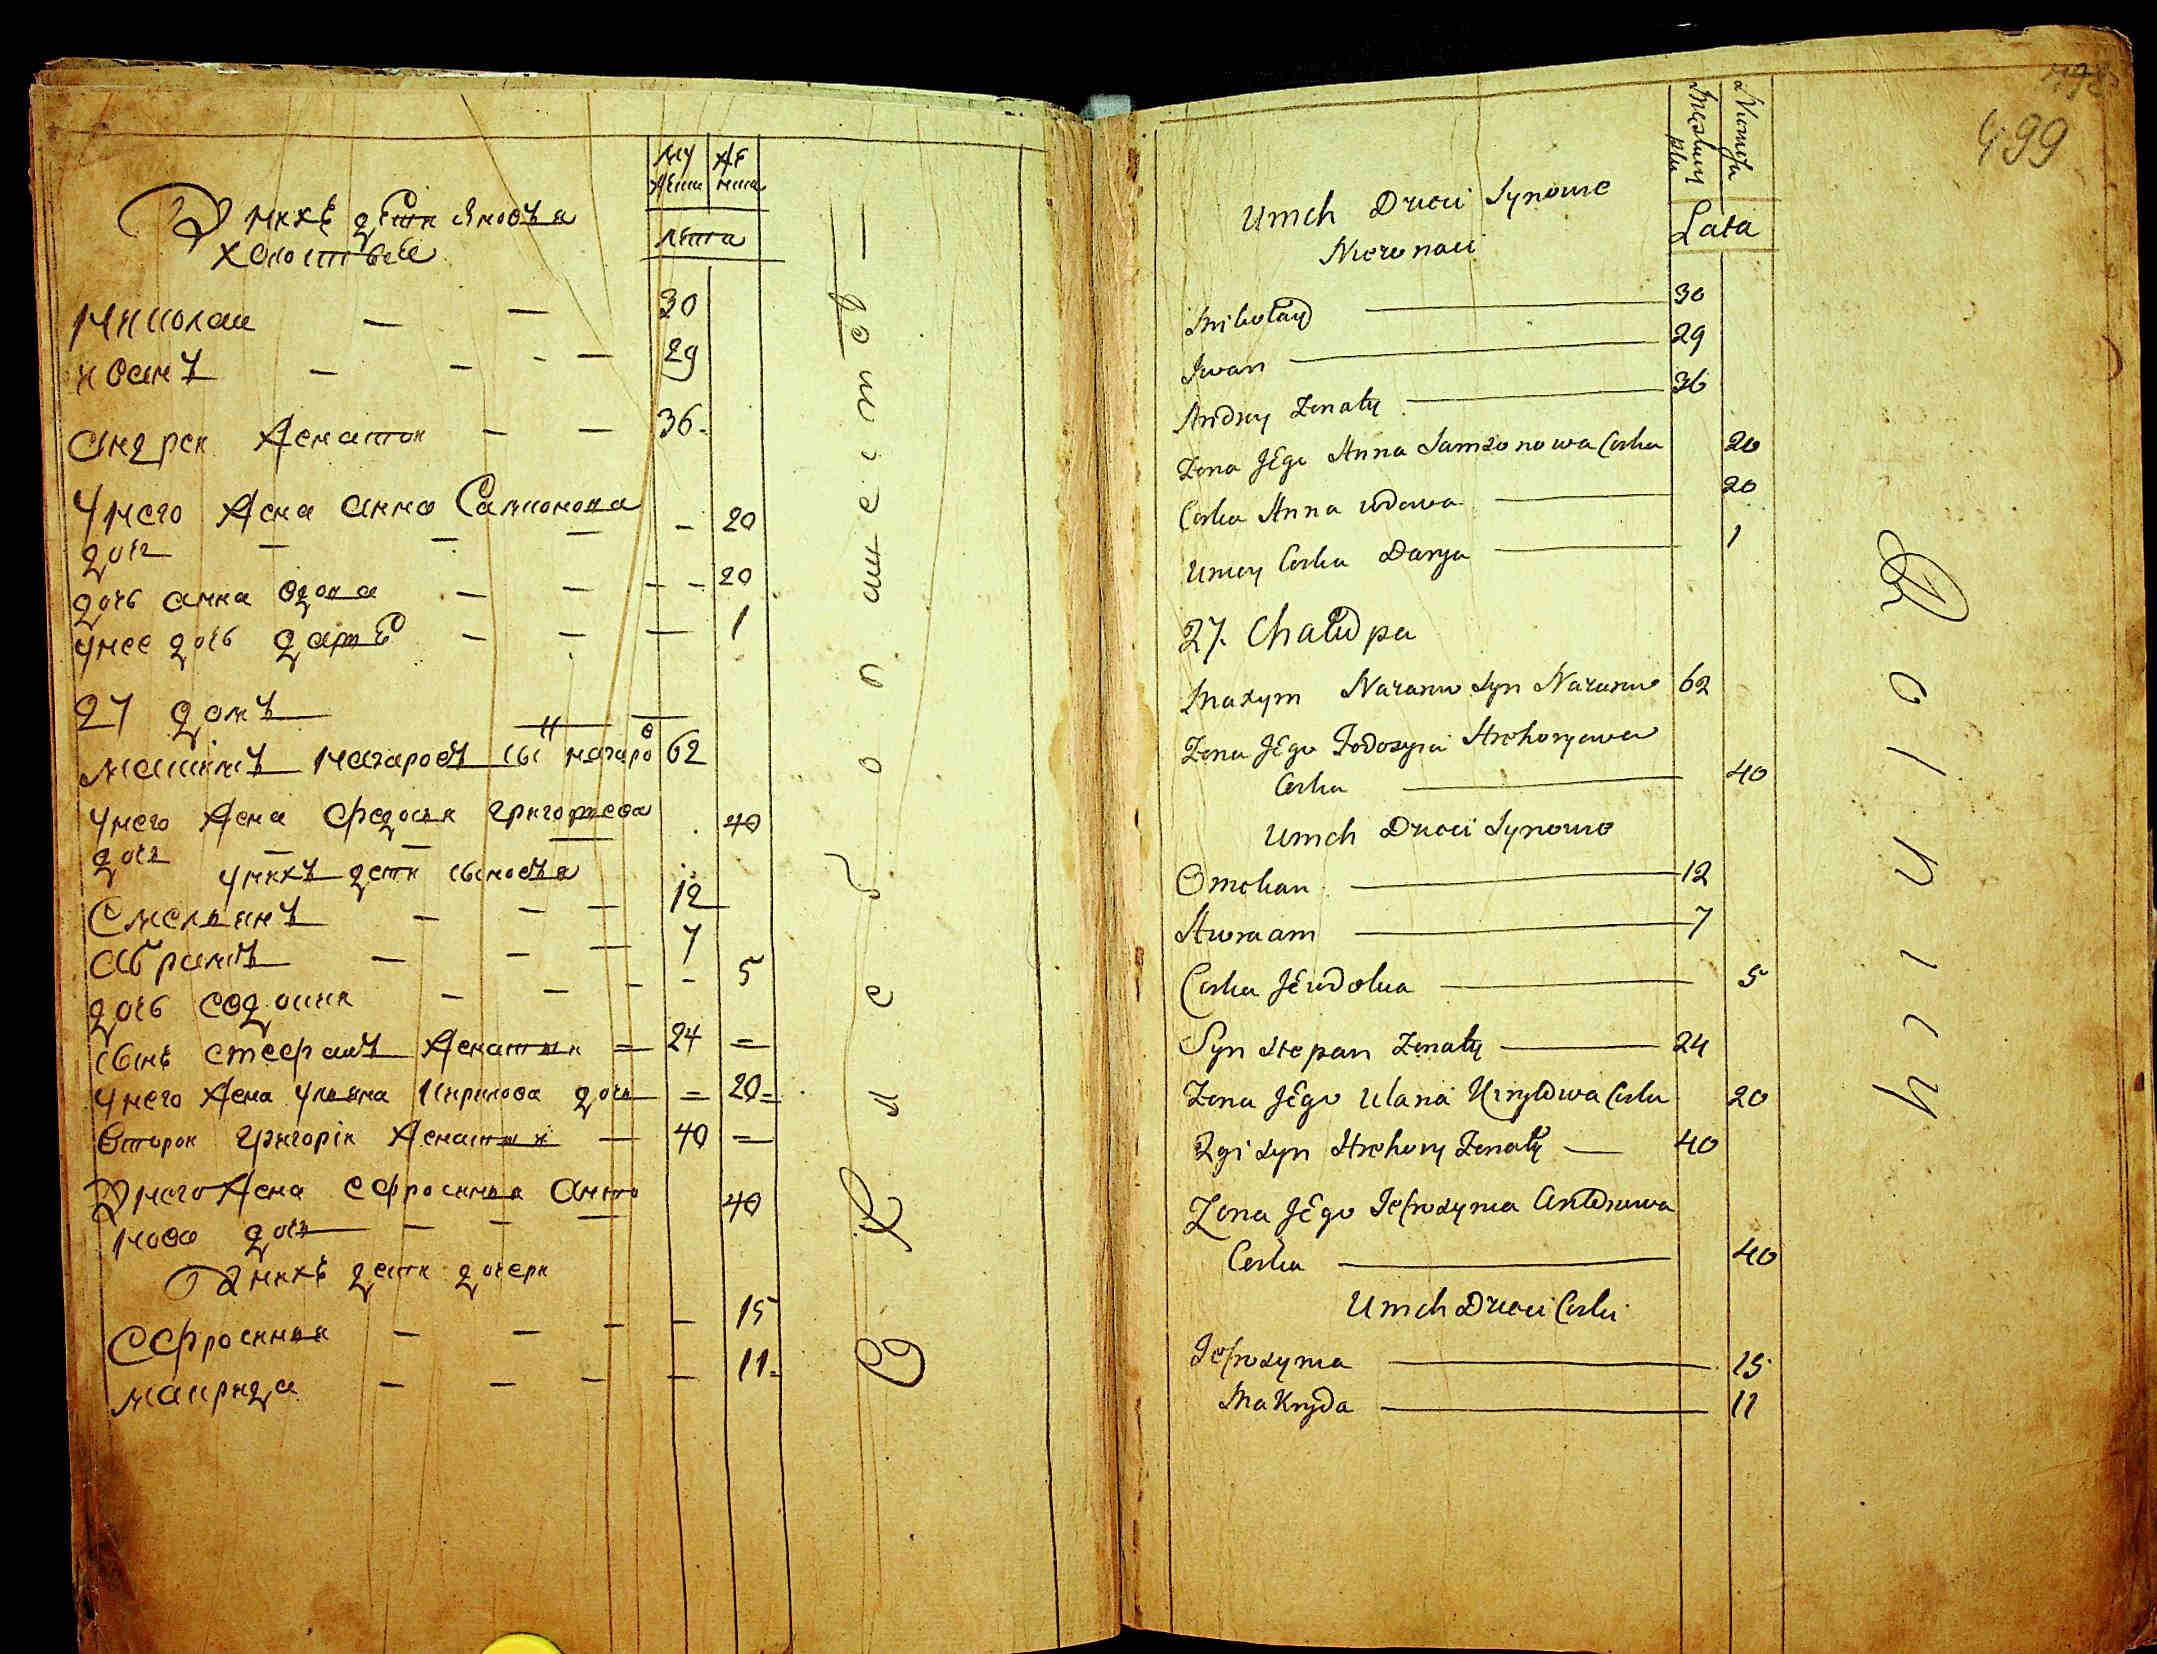 му
жеска
же
нска
лѣта
У нихъ дѣти сыновья
холостые
Николай — — 30
Иванъ — — - — 29
Андрей женатой — — 36.
У него жена Анна Самсонова
дочь — — — - 20
дочь Анна вдова — — — - 20
у нее дочь Даря — — — 1
27 домъ
Максимъ Назаровъ сы Назаро в 62
у него жена Федосья Григорьева
дочь — — — 40
у нихъ дети сыновья
Емельянъ — — — 12
Абрамъ — — — 7
дочь Евдокия — — - - 5
сынъ Стефанъ женатый = 24 =
у него жена Ульяна Кирилова дочь = 20=
вторый Григорій женатый — 40 —
У него жена Ефросинья Анто
нова дочь — — — 40
У нихъ дети дочери
Ефросинья — — — — 15
Макрида — — — — 11=
499
Męskiey
płci
Niewiasta
Lata
U nich Dzieci Synowie
Nieżonaci
Mikołay — 30
Iwan — 29
Andrey Żonaty — 36
Żona JEgo Anna Samsonowa Corka 20
Corka Anna wdowa — 20
U niey Corka Darya — 1
27. Chałupa
Maxym Nazarow Syn Nazarow 62
Żona JEgo Fedosyia Hrehoryewa
Corka — 40
U nich Dzieci Synowie
Omelian — 12
Awraam — 7
Corka JEwdokia — 5
Syn Stepan Żonaty — 24
Żona JEgo Ulana Kiryłowa Corka 20
2gi Syn Hrehory Żonaty — 40
Żona JEgo Jefrosynia Antonowa
Corka — 40
U nich Dzieci Corki
Jefrosynia — 15
Makryda — 11